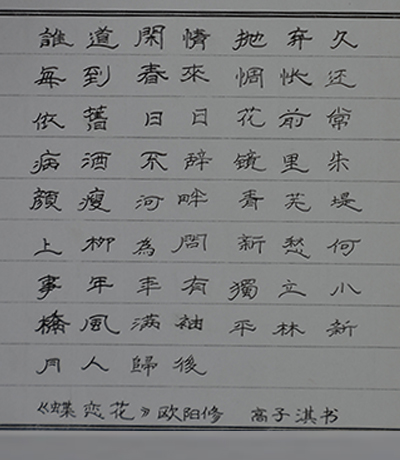 誰道閑情抛弃久
每到春來惆悵还
依舊日日花前常
病酒不辞鏡里朱
顔瘦河畔青芜堤
上柳為問新愁何
事年年有獨立小
橋風满袖平林新
月人歸後
《蝶恋花》欧阳修 高子淇书